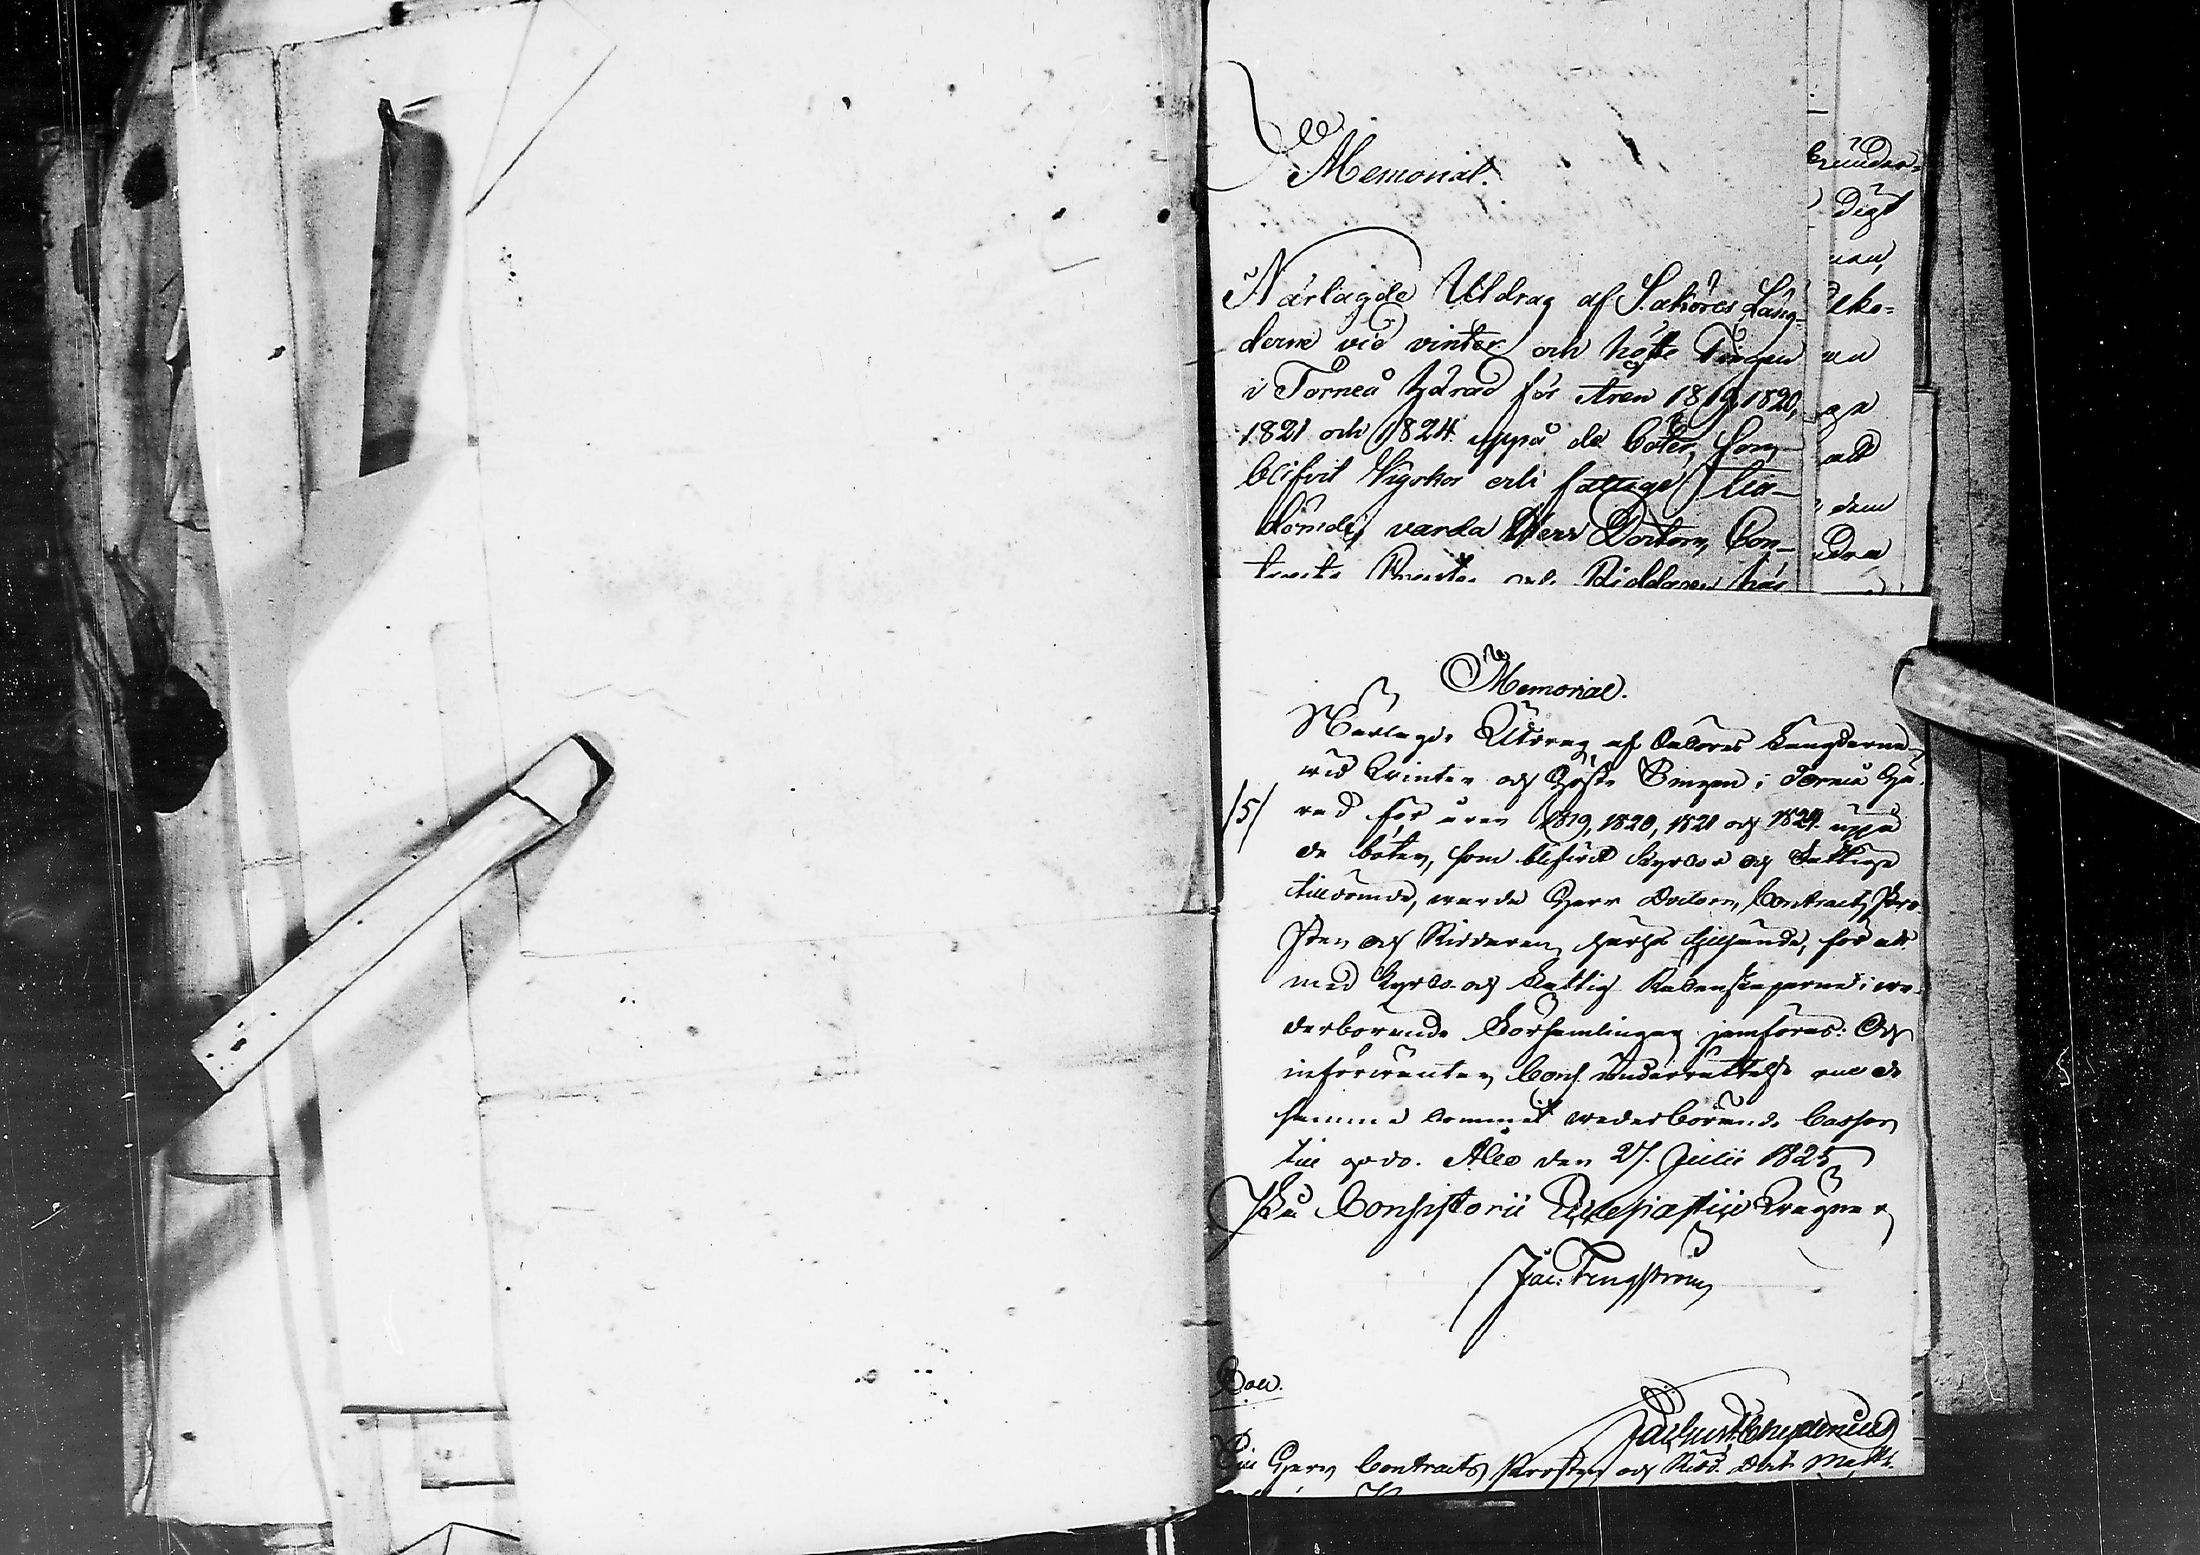 Memorial.
Närlagde Utdrag af Saköres Läng-
derne vid vinter och höste Tingen
i Torneå härad för åren 1819, 1820,
1821 och 1824 uppå de böter, som
blifvit Kyrkor och fattige till-
dömde, varda Herr Doctorn, Con-
tracts Prosten och Riddaren här
digt
dem
Memorial.
Närlagde Utdrag af Saköres Längderne
wid Winter och Höste Tingen i Torneå Hä-
/5/
rad för åren 1819, 1820, 1821 och 1824 uppå
de böter, som blifwit Kyrkor och Fattige
tilldömde, warda Herr Doctorn, Contracts Pro-
sten och Riddaren härhos tillsände, för att
med Kyrko- och Fattig Räkenskaperne i we-
derbörande Församlingar jemföras: Och
införwäntar Cons. underrättelse om de
samma kommit wederbörande Cassor
till godo. Åbo den 27. Julii 1825
På Consistorii Ecclesiastici Wägnar
Jac: Tengström
Till Herr Contracts Prosten och Ridd. Doct. Matth.